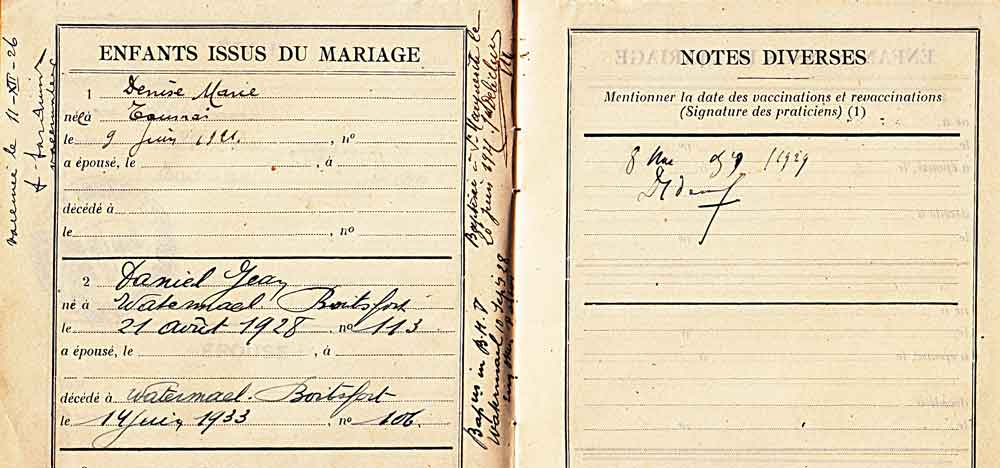 ENFANTS ISSUS DU MARIAGE
1 Denise Marie
né à Tournai
le 9 Juin 1921 , nº
a épousé, le , à
décédé à
le , nº
2 Daniel Jean
né à Watermael Boitsfort
le 21 août 1928 , nº 113
a épousé, le , à
décédé à Watermael-Boitsfort
le 14 Juin 1933 , nº 106
vaccinée le 11-XII-26
Baptisée à Ste Marguerite le
20 juin 1921
NOTES DIVERSES
Mentionner la date des vaccinations et revaccinations
(Signature des praticiens) (1)
1929